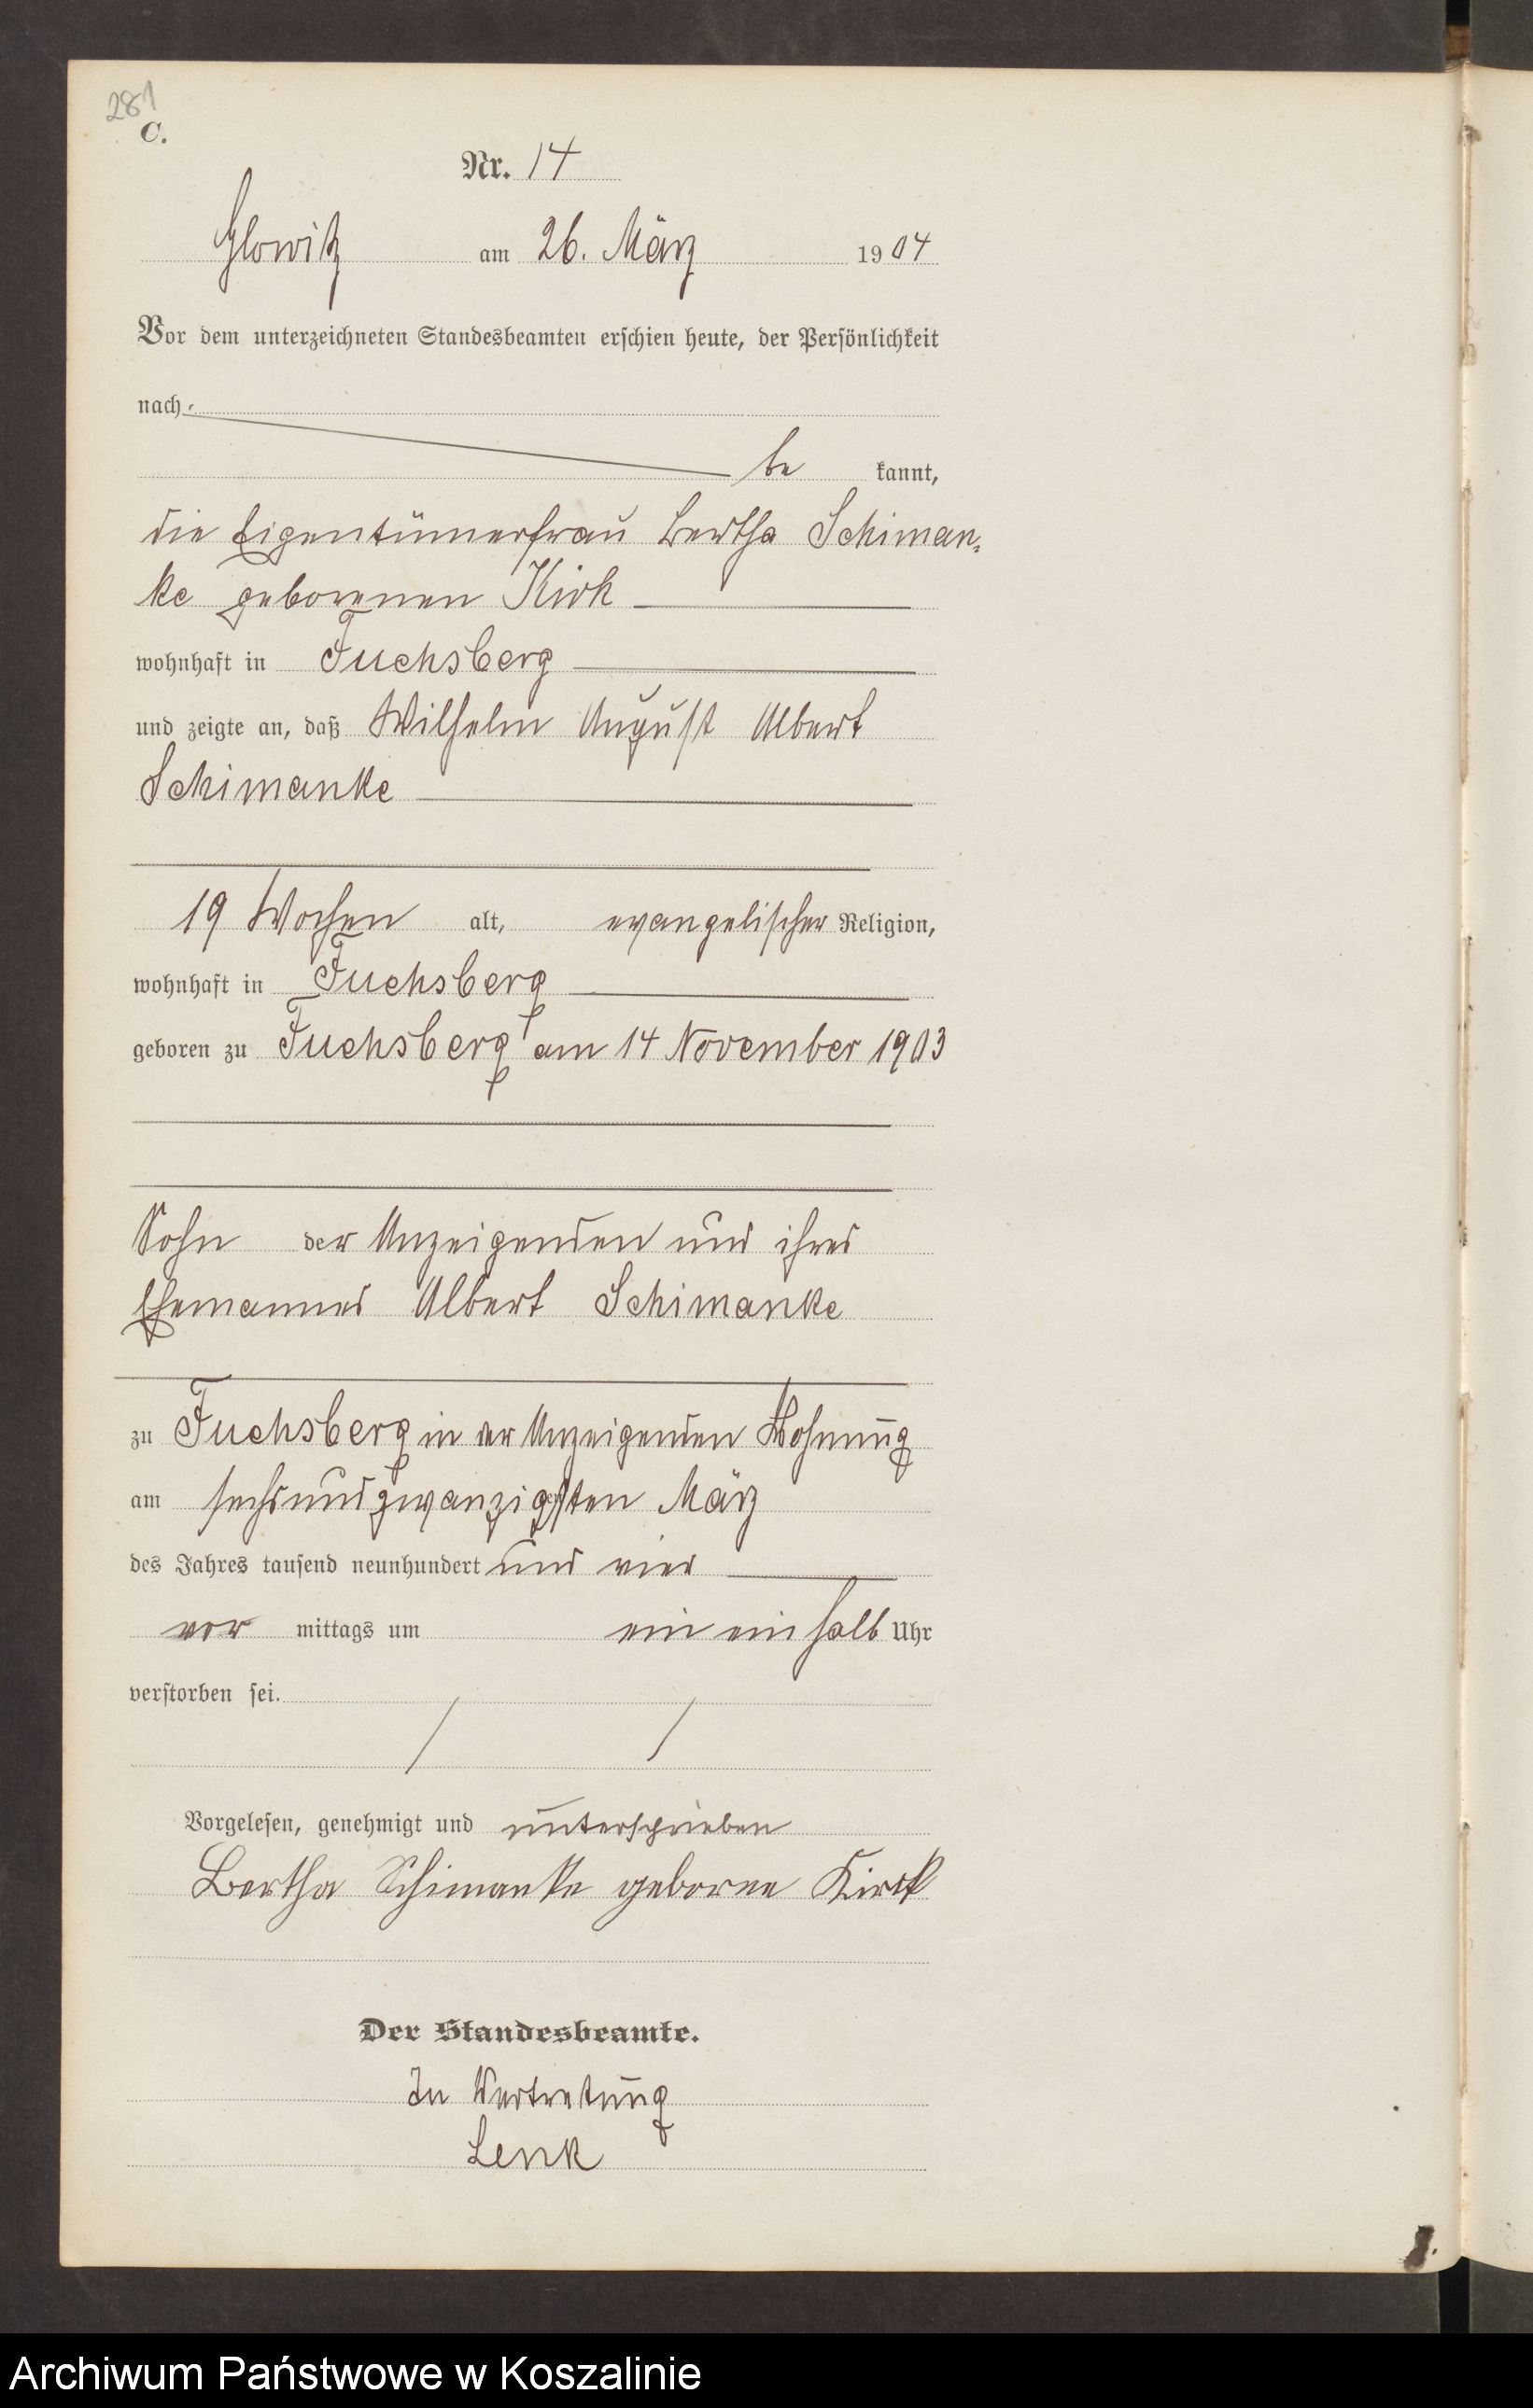 281
C.
Nr. 14
Glowitz am 26. März 1904
Vor dem unterzeichneten Standesbeamten erschien heute, der Persönlichkeit
nach
be kannt,
die Eigentümerfrau Bertha Schiman-
ke geborenen Kirk
wohnhaft in Fuchsberg
und zeigte an, daß Wilhelm August Albert
Schimanke
19 Wochen alt, evangelischer Religion,
wohnhaft in Fuchsberg
geboren zu Fuchsberg am 14 November 1903
Sohn der Anzeigenden und ihres
Ehemannes Albert Schimanke
zu Fuchsberg in der Anzeigenden Wohnung
am sechsundzwanzigsten März
des Jahres tausend neunhundert und vier
vor mittags um ein ein halb Uhr
verstorben sei.
Vorgelesen, genehmigt und unterschrieben
Bertha Schimanke geborne Kirck
Der Standesbeamte.
In Vertretung
Lenk
Archiwum Państwowe w Koszalinie